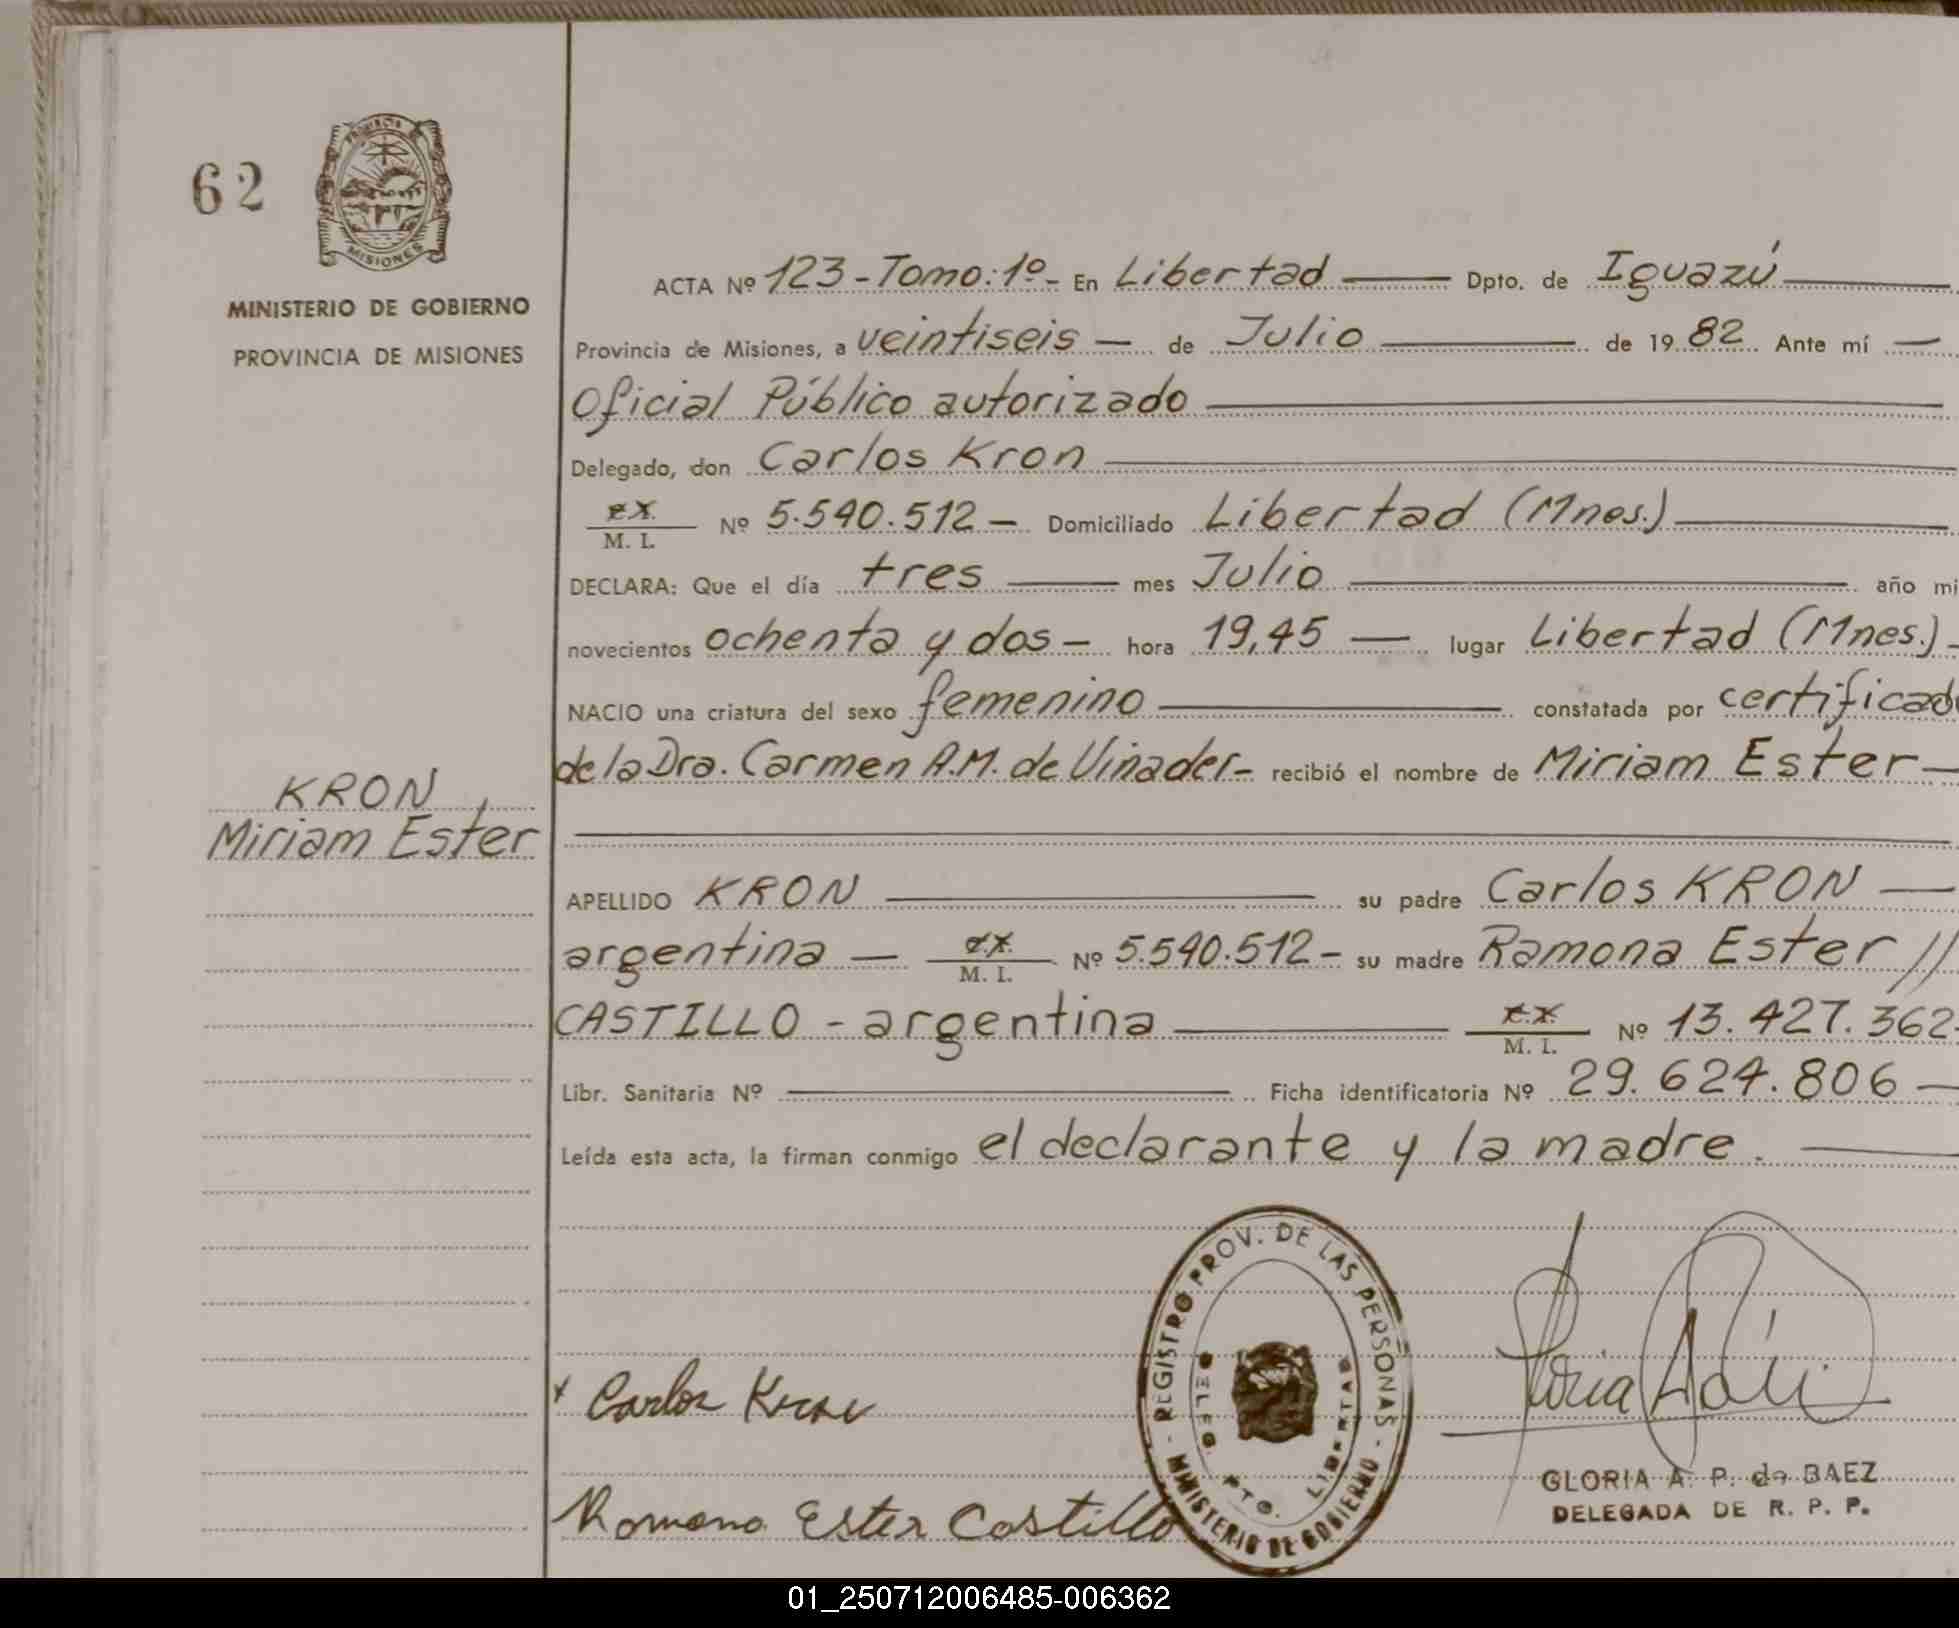 62
PROVINCIA
MISIONES
MINISTERIO DE GOBIERNO
PROVINCIA DE MISIONES
ACTA Nº 123 - Tomo: 1º - En Libertad Dpto. de Iguazú
Provincia de Misiones, a veintiseis de Julio de 1982 Ante mí
Oficial Público autorizado
Delegado, don Carlos Kron
M. I. Nº 5.590.512 - Domiciliado Libertad (Mnes.)
DECLARA: Que el día tres mes Julio año mi
novecientos ochenta y dos - hora 19,45 lugar Libertad (Mnes.) -
NACIO una criatura del sexo femenino constatada por certificado
de la Dra. Carmen A.M. de Vinader - recibió el nombre de Miriam Ester
KRON
Miriam Ester
APELLIDO KRON su padre Carlos KRON
argentina M. I. Nº 5.590.512 - su madre Ramona Ester //
CASTILLO - argentina M. I. Nº 13.427.362
Libr. Sanitaria Nº Ficha identificatoria Nº 29.624.806
Leída esta acta, la firman conmigo el declarante y la madre.
REGISTRO PROV. DE LAS PERSONAS - MINISTERIO DE GOBIERNO -
DELEG. PTO. LIBERTAD
Carlos Kron
Ramona Ester Castillo
GLORIA A. P. de BAEZ
DELEGADA DE R. P. P.
01_250712006485-006362